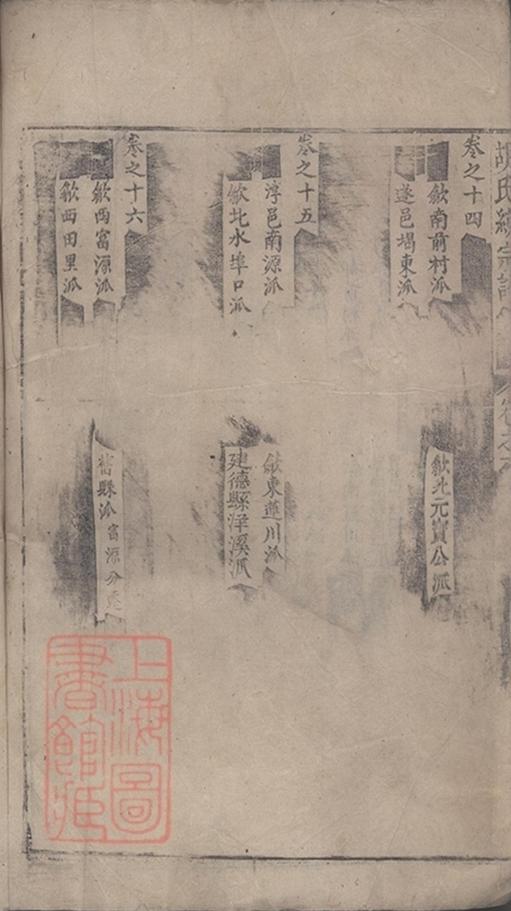 卷之十四
歙南前村派
遂邑堨東派
歙北元寳公派
卷之十五
淳邑南源派
歙北水埠口派
歙東蓮川派
建德縣洋溪派
卷之十六
歙西富源派
歙西田里派
縣派富源分
上海圖
書館藏